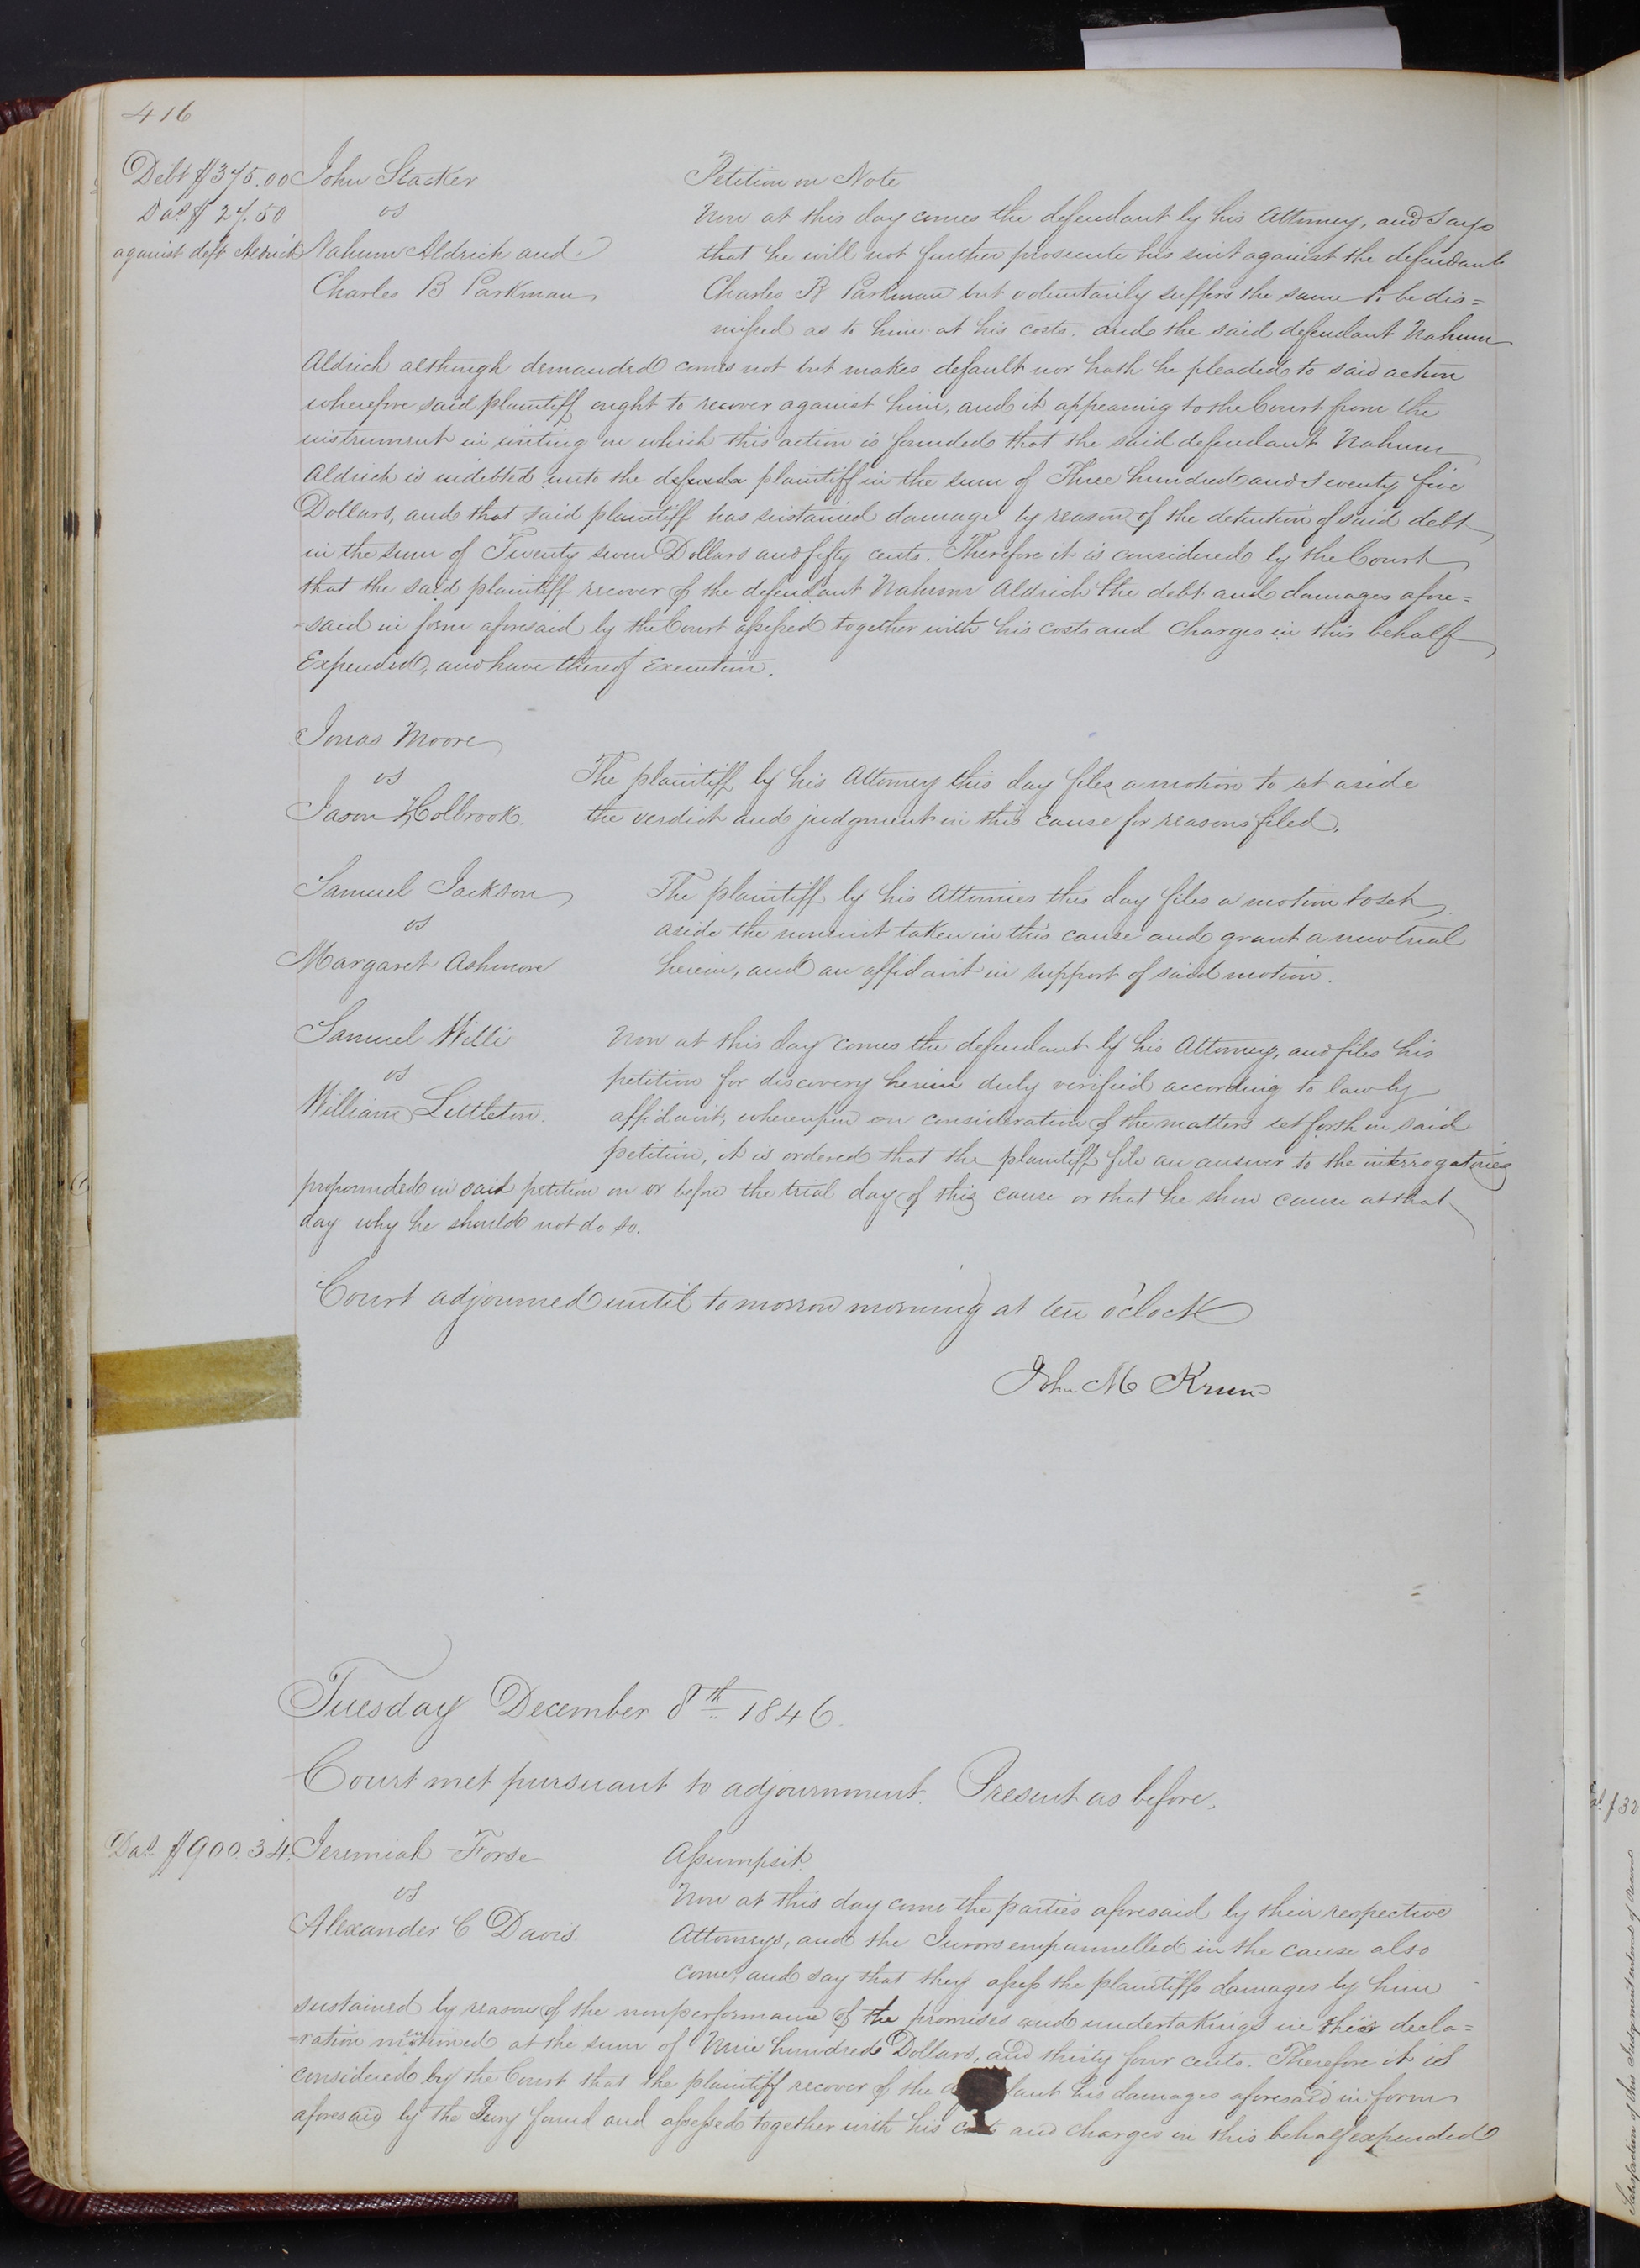 416
Debt $375.00 John Slacker Petition on Note
Das $27.50 vs Now at this day comes the defendant by his Attorney, and Says
against deft Aldrich Nahum Aldrich and that he will not further prosecute his suit against the defendant
Charles B Parkman Charles R Parkman but voluntarily suffers the same to be dis=
missed as to him at his costs. and the said defendant Nahum
Aldrich although demanded comes not but makes default nor hath he pleaded to said action
wherefore said plaintiff ought to recover against him, and it appearing to the Court from the
instrument in writing on which this action is founded that the said defendant Nahum
Aldrich is indebted unto the defenda plaintiff in the sum of Three hundred and Seventy five
Dollars, and that said plaintiff has sustained damage by reason of the detention of said debt
in the sum of Twenty seven Dollars and fifty cents. Therefore it is considered by the Court
that the said plaintiff recover of the defendant Nahum Aldrich the debt and damages afore=
=said in form aforesaid by the Court assessed together with his costs and charges in this behalf
Expended, and have thereof Execution.
Jonas Moore
vs The plaintiff by his Attorney this day files a motion to set aside
Jason Holbrook. the verdict and judgment in this cause for reasons filed.
Samuel Jackson The plaintiff by his Attornies this day files a motion to set
vs aside the nonsuit taken in this cause and grant a new trial
Margaret Ashmore herein, and an affidavit in support of said motion.
Samuel Willi Now at this day comes the defendant by his Attorney, and files his
vs petition for discovery herein duly verified according to law by
William Littleton. affidavit, whereupon on consideration of the matters set forth in said
petition, it is ordered that the plaintiff file an answer to the interrogatories
propounded in said petition on or before the trial day of this cause or that he show cause at that
day why he should not do so.
Court adjourned until tomorrow morning at ten o'clock
John M Krum
Tuesday December 8th 1846.
Court met pursuant to adjournment. Present as before.
Das $900.34. Jeremiah Forse Assumpsit.
vs Now at this day come the parties aforesaid by their respective
Alexander C Davis. Attorneys, and the Jurors empannelled in the cause also
come, and say that they assess the plaintiffs damages by him
sustained by reason of the nonperformance of the promises and undertakings in their decla=
=ration mentioned at the sum of Nine hundred Dollars, and thirty four cents. Therefore it is
considered by the Court that the plaintiff recover of the defendant his damages aforesaid in form
aforesaid by the Jury found and assessed together with his costs and charges in this behalf expended
Satisfaction of this Judgment entered of Record